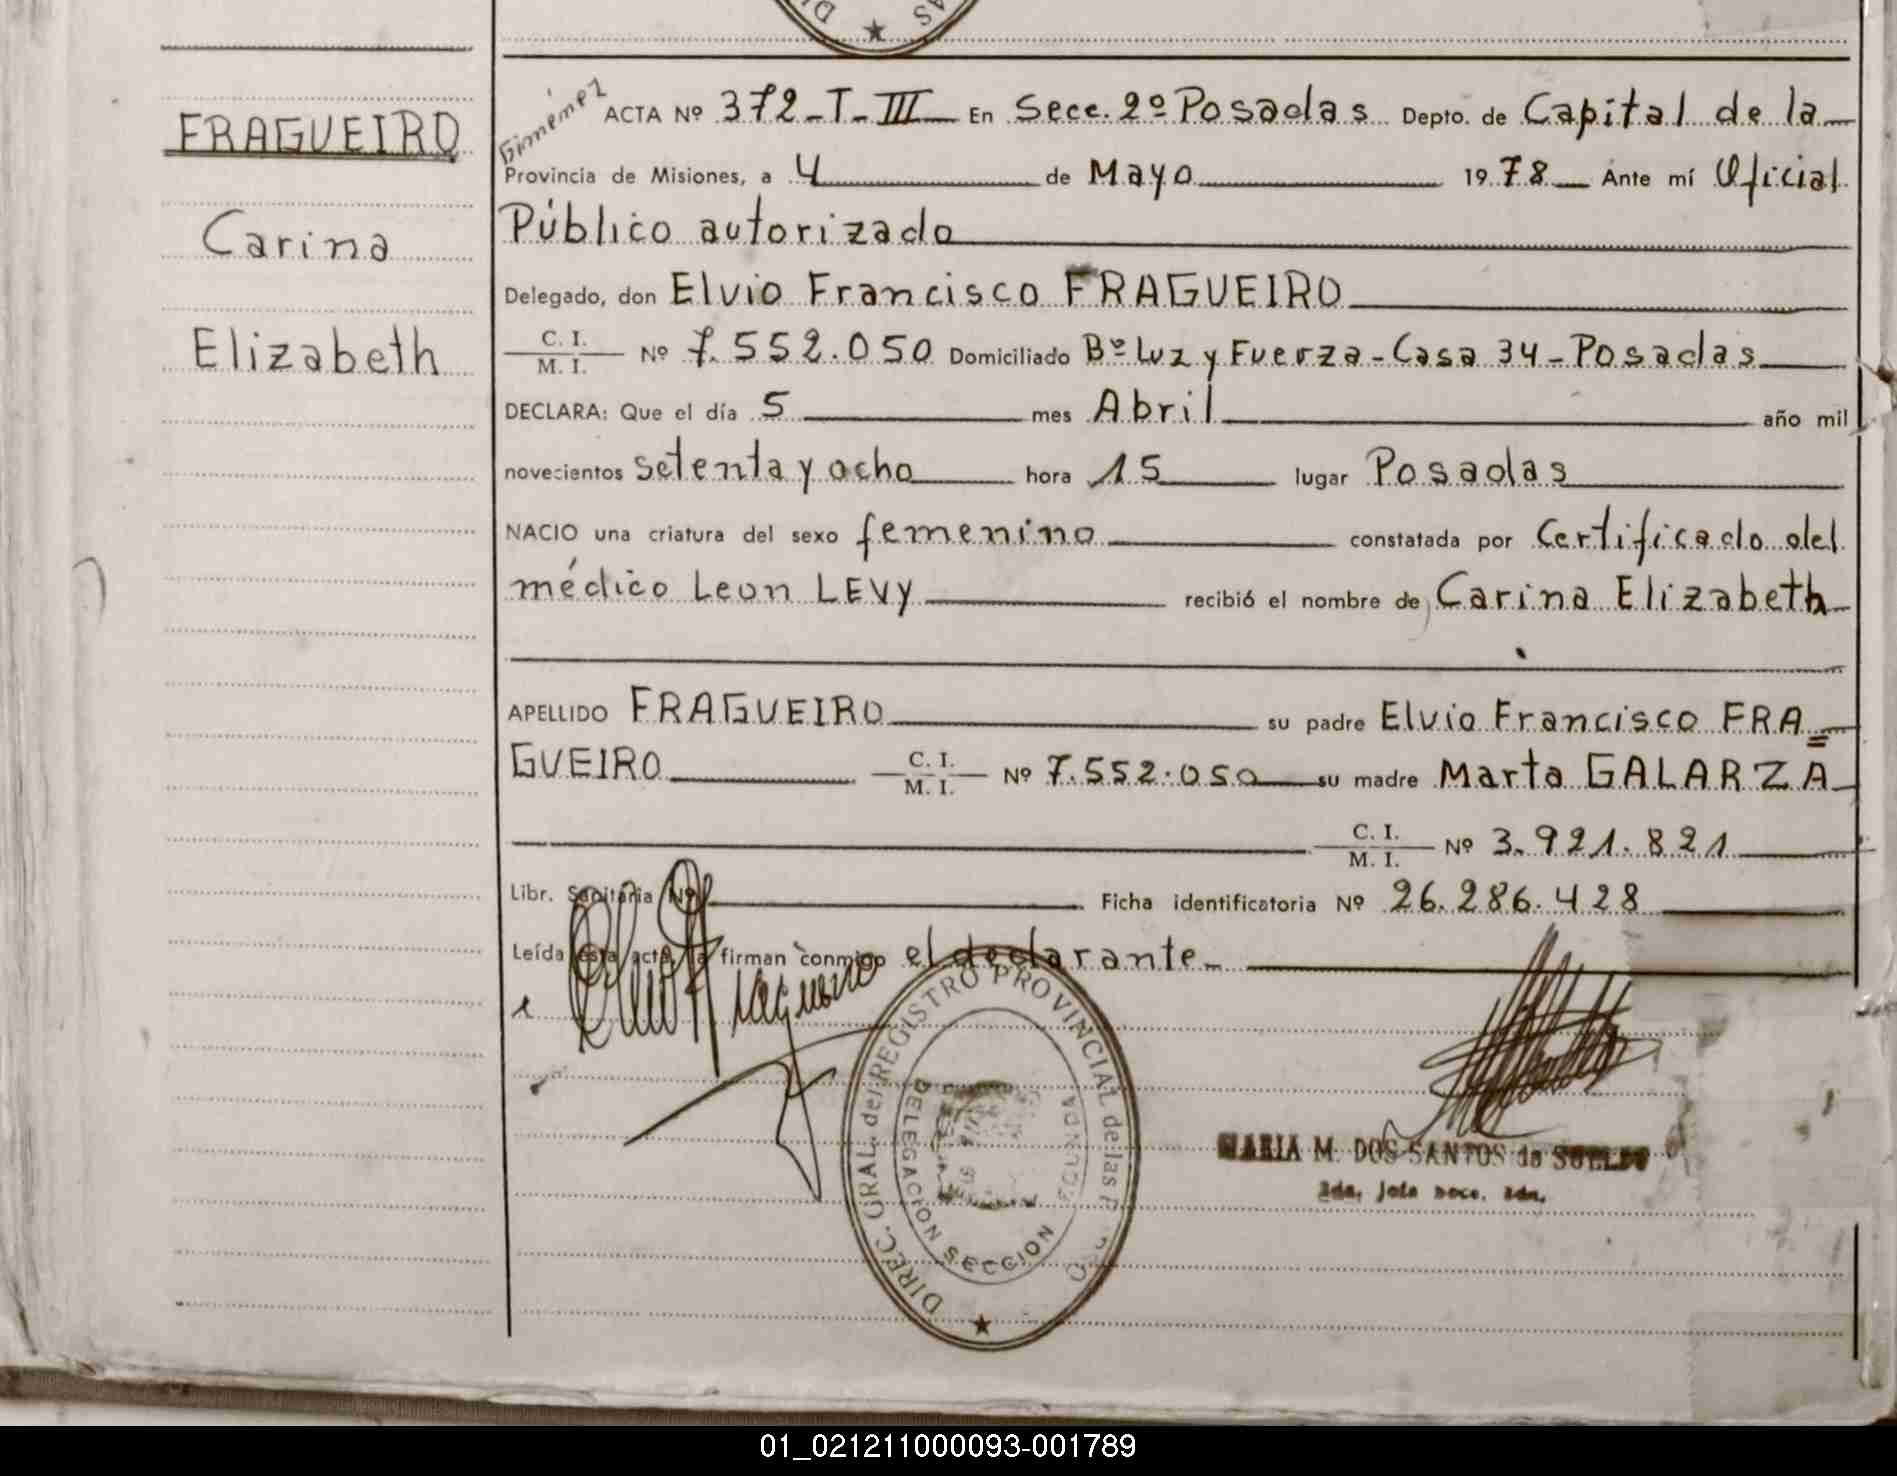 FRAGUEIRO
Carina
Elizabeth
Gimémez
ACTA Nº 372-T-III En Secc. 2º Posadas Depto. de Capital de la
Provincia de Misiones, a 4 de Mayo 1978 Ante mí Oficial
Público autorizado
Delegado, don Elvio Francisco FRAGUEIRO
C. I.
M. I. Nº 7.552.050 Domiciliado Bº Luz y Fuerza - Casa 34 - Posadas
DECLARA: Que el día 5 mes Abril año mil
novecientos setenta y ocho hora 15 lugar Posadas
NACIO una criatura del sexo femenino constatada por Certificado del
médico Leon LEVY recibió el nombre de Carina Elizabeth
APELLIDO FRAGUEIRO su padre Elvio Francisco FRA=
GUEIRO C. I.
M. I. Nº 7.552.050 su madre Marta GALARZA
C. I.
M. I. Nº 3.921.821
Libr. Sanitaria Nº Ficha identificatoria Nº 26.286.428
Leída esta acta, la firman conmigo el declarante.-
DIREC. GRAL. del REGISTRO PROVINCIAL de las P
DELEGACION SECCION SEGUNDA
MARIA M. DOS SANTOS de
01_021211000093-001789